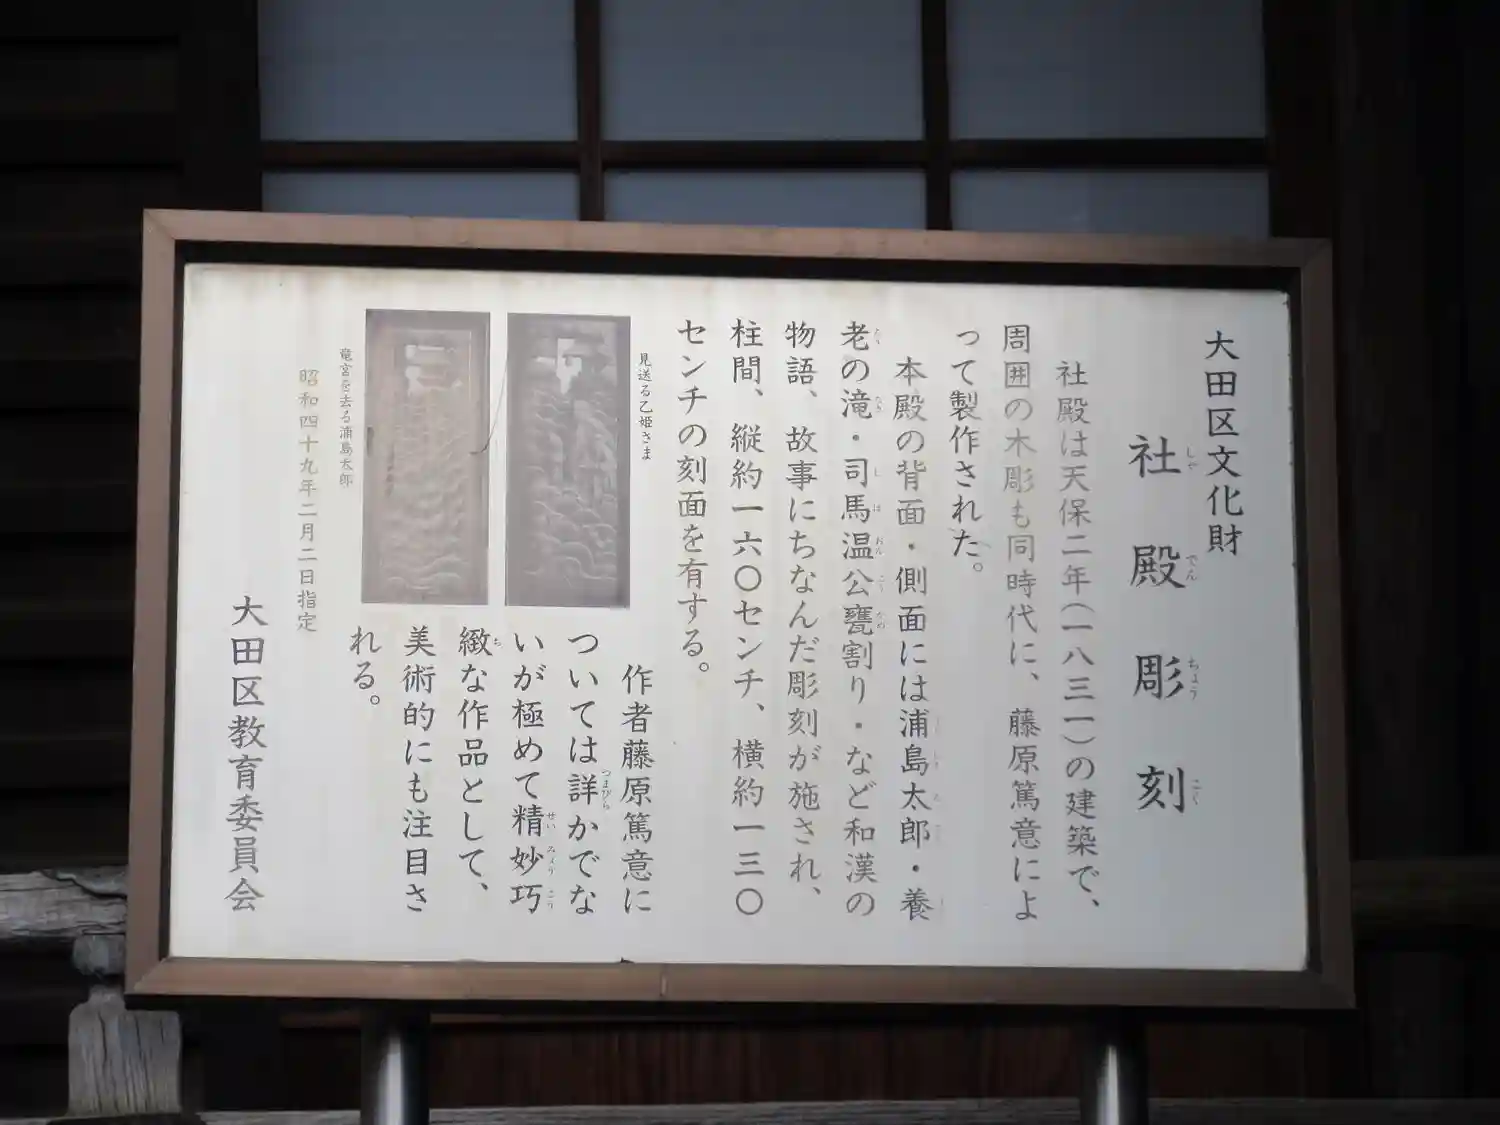 大田区文化財
社殿彫刻
しゃ でん ちょう こく
社殿は天保二年(一八三一)の建築で、
周囲の木彫も同時代に、藤原篤意によ
って製作された。
本殿の背面・側面には浦島太郎・養
老の滝・司馬温公甕割り・など和漢の
物語、故事にちなんだ彫刻が施され、
柱間、縦約一六〇センチ、横約一三〇
センチの刻面を有する。
見送る乙姫さま
竜宮を去る浦島太郎
作者藤原篤意に
ついては詳かでな
つまびら
いが極めて精妙巧
せい みょう こう
緻な作品として、
ち
美術的にも注目さ
れる。
昭和四十九年二月二日指定
大田区教育委員会